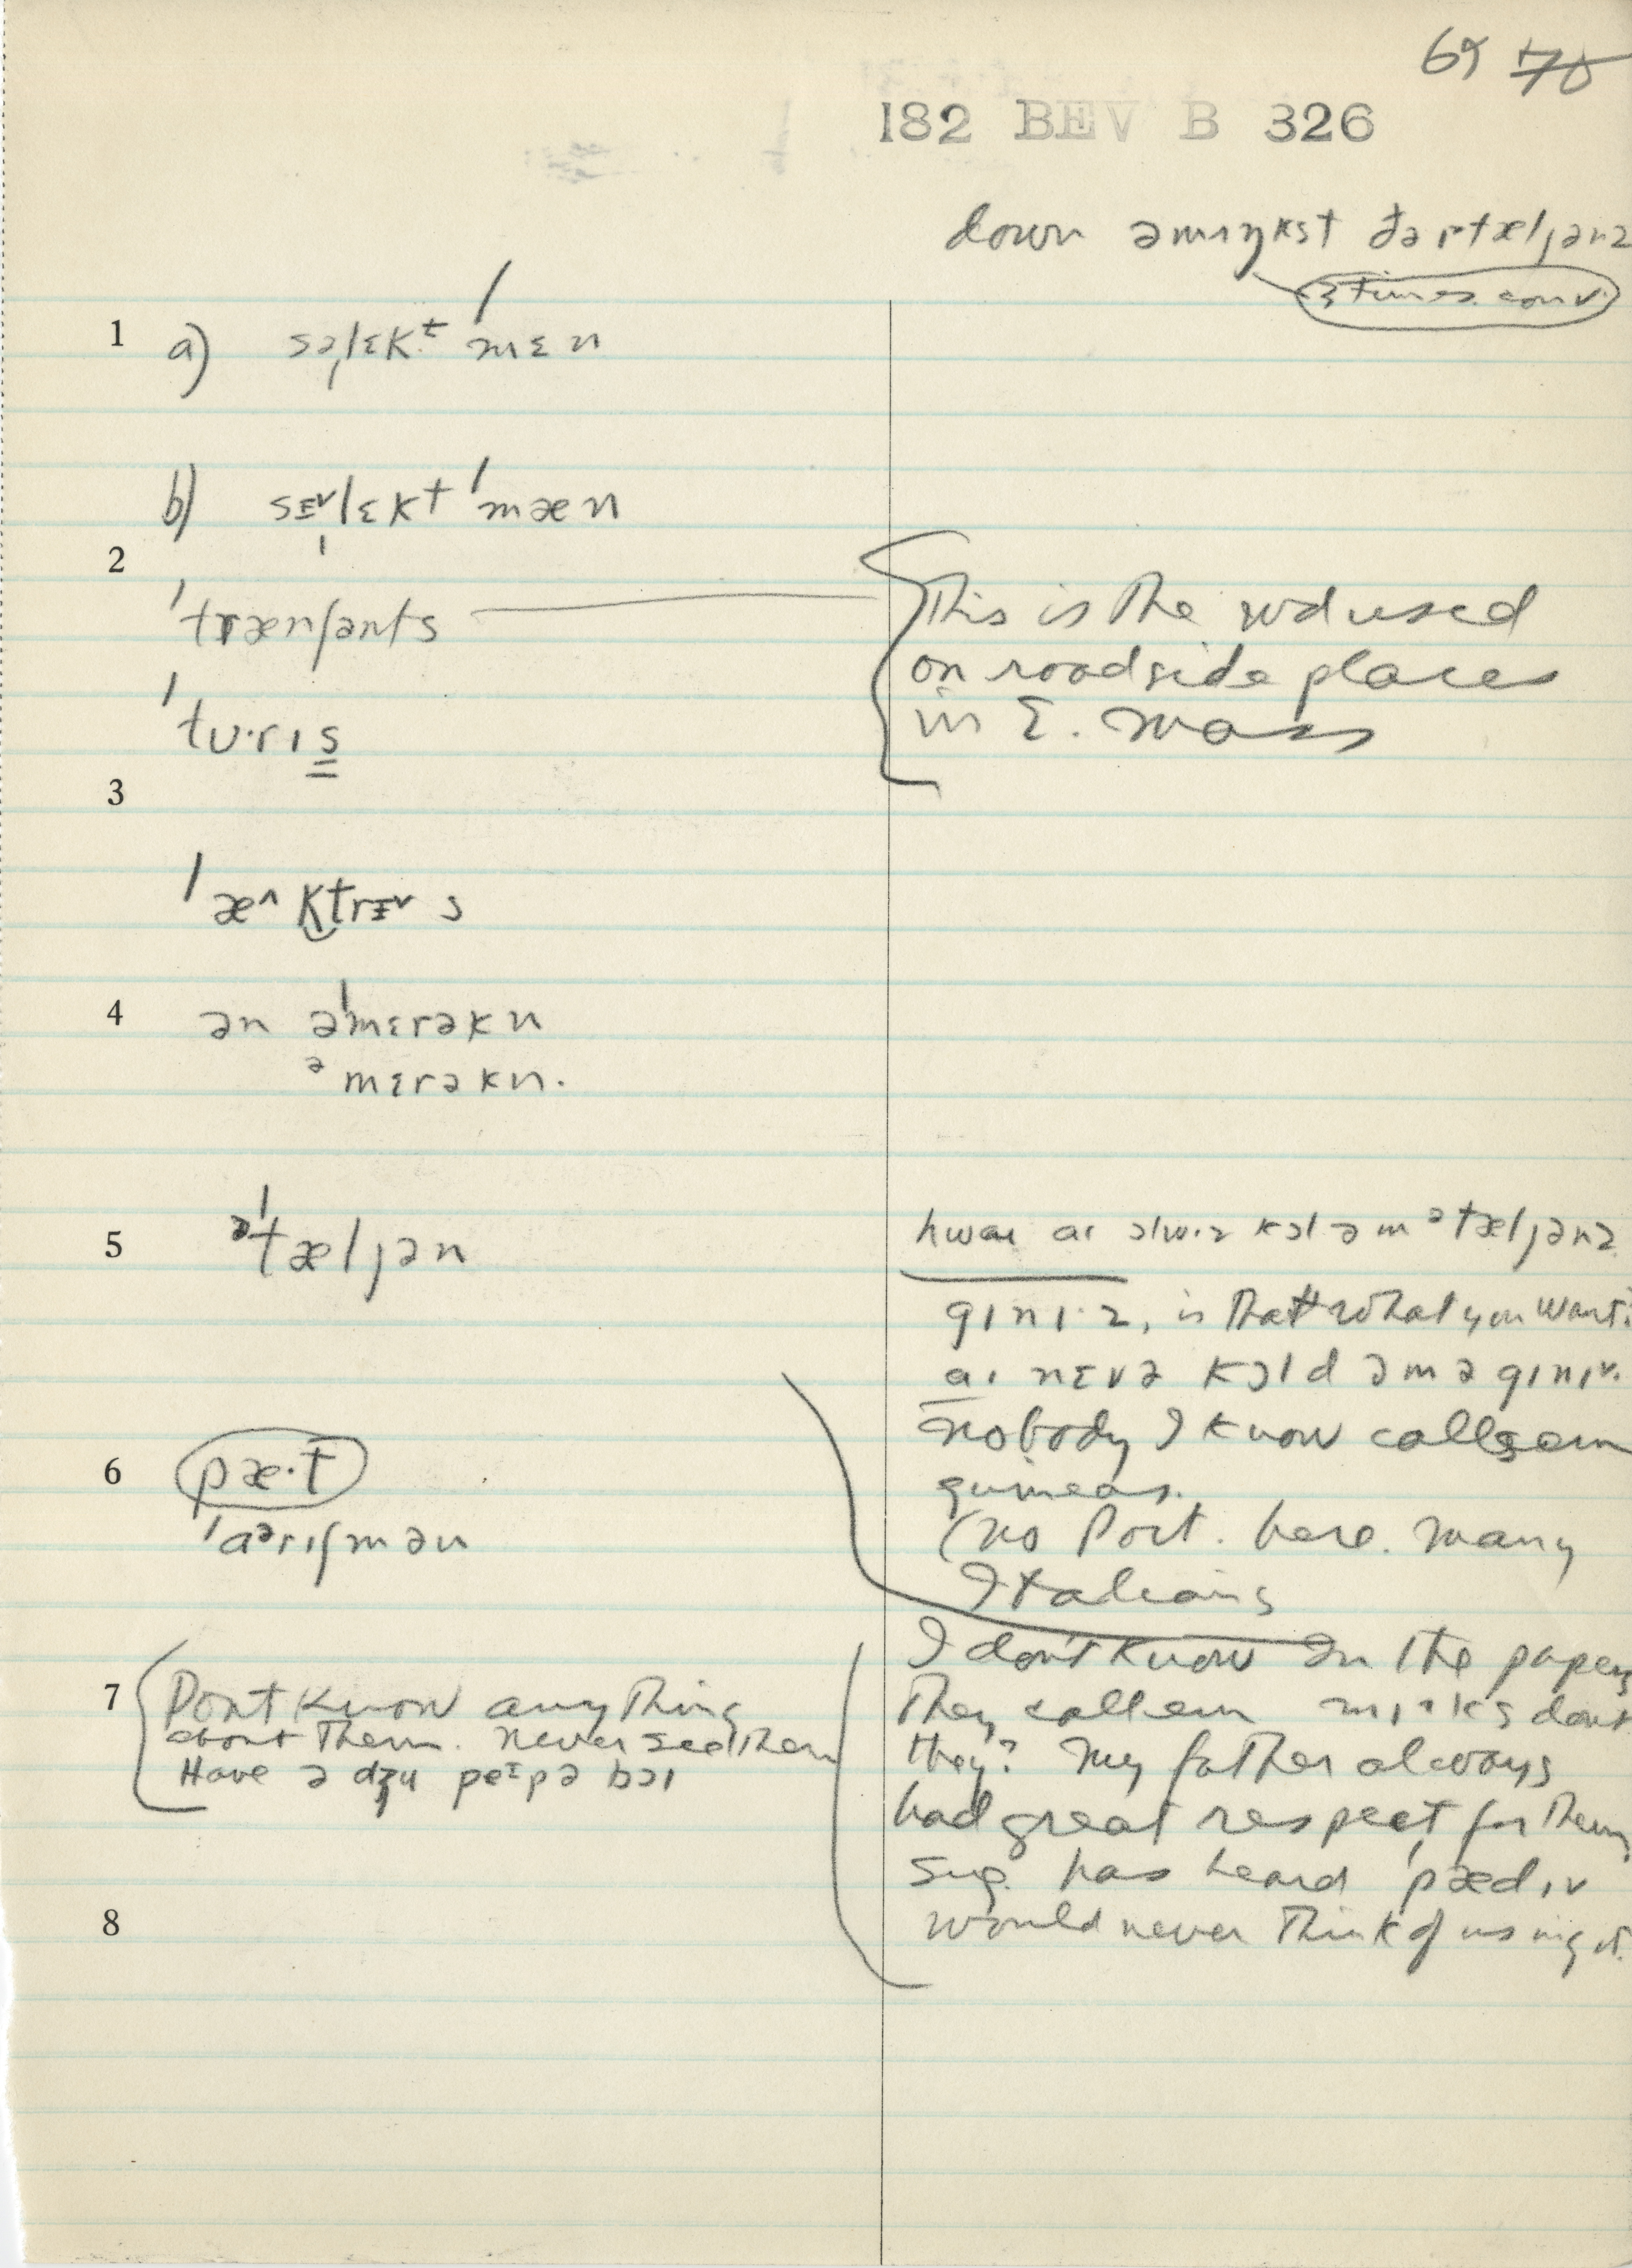 69 70
182 BEV B 326
down əmɪŋkst ðə ɪtæljənz
3 times. conv.
1 a) səˌlɛkt ˈmɛn
b) sɪ˅ˌlɛkt ˈmæn
2
ˈtrænʃənts
This is the wd used
on roadside places
in E. Mass
ˈtʊ·rɪs
3
ˈæ^ktrɪ˅s
4 ən əˈmɛrəkn
əmɛrəkn.
5 əˈtæljən
hwaɪ aɪ ɔlwɪz kɔl əm ətæljənz
gɪnɪ·z, is that what you want?
aɪ nɛvə kɔld əm ə gɪnɪ˅.
nobody I know calls em
guineas.
(no Port. here. many
Italians
6 pæ·t
ˈaərɪʃmən
I don't know In the papers
7 Dont know anything
about them. never see them
Have ə dʒu peɪpə bɔɪ
they call em mɪ·ks dont
they? My father always
had great respect for them
Sug. has heard ˈpædɪ˅
8
would never think of using it.